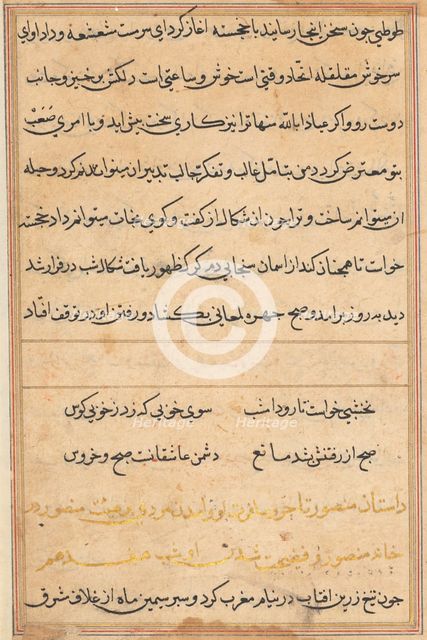 طوطی چون سخن انجا رسانید با خجسته آغاز کرد ای سرمست شعشعه و داد اوای
سرخوش مقلقله اتحاد وقتی است خوش و ساعتی است دلکش برخیز و جانب
دوست رو و اکر عیاذا بالله منها ترا نیز کاری سخت پیش اید و یا امری صَعْب
بتو معترض کردد من بتامل غالب و تفکر جالب تدبیر ان میتوانم کرد و حیله
ان میتوانم ساخت و ترا چون ان شکال از کفت و کوی نجات میتوانم داد خجسته
خواست تا همچنان کند از اسمان سنجابی دم کرک ظهور یافت شکال شب در فرار شد
دید به روز برامد و صبح چهره لمعانی بکشاد و رفتن او در توقف افتاد
نخشبی خواست تا رود امشب سوی خوبی که زد ز خوبی کوس
صبح از رفتنش بشد مانع دشمن عاشقانست صبح و خروس
داستان منصور تاجر و سافرت او و امدن مردی بر هیئت منصور در
خانه منصور و فضیحت شدن او شب هفدهم
چون تیغ زرین افتاب در نیام مغرب کرد و سپر سیمین ماه از غلاف شرق
Heritage
Heritage
Heritage
Heritage